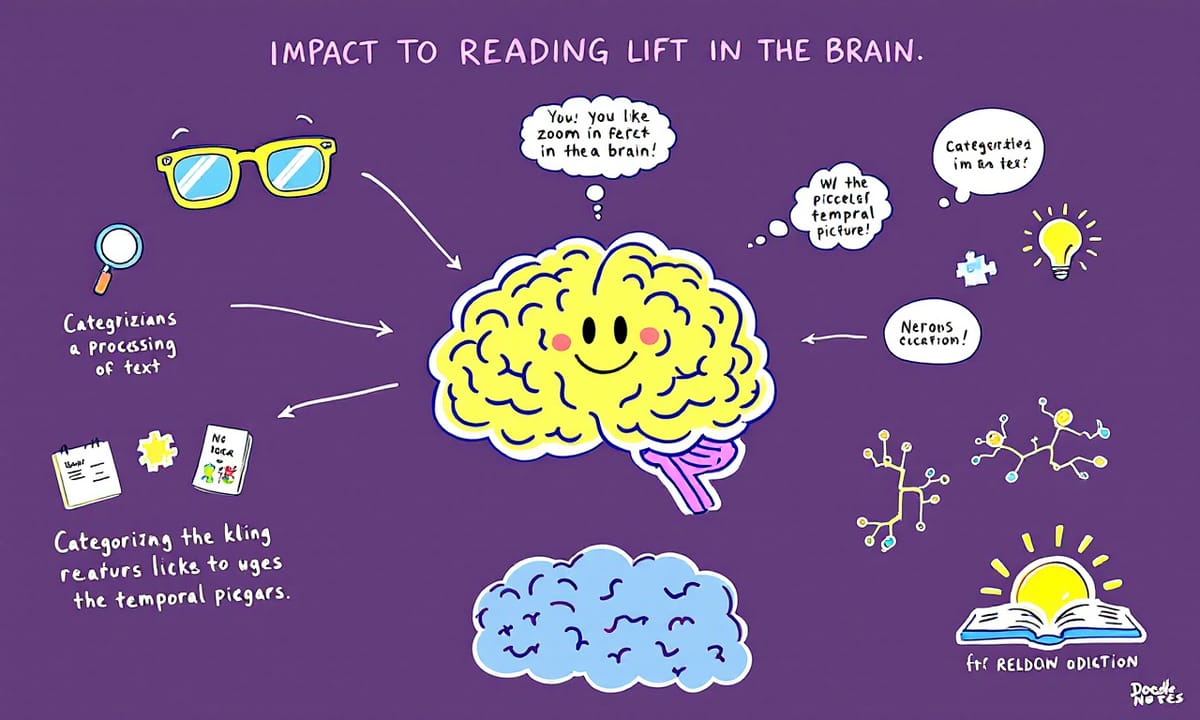 IMPACT TO READING LIFT IN THE BRAIN.
You! you like
zoom in ferct
in thea brain!
W/ the
piccelsf
tempral
picture!
im an tex!
Categrizians
a processing
of text
Nerons
No
Categorizng the kling
reaturs licks to uges
the temporal piegars.
frf RELDOW ODICTION
Doodle
NOTES